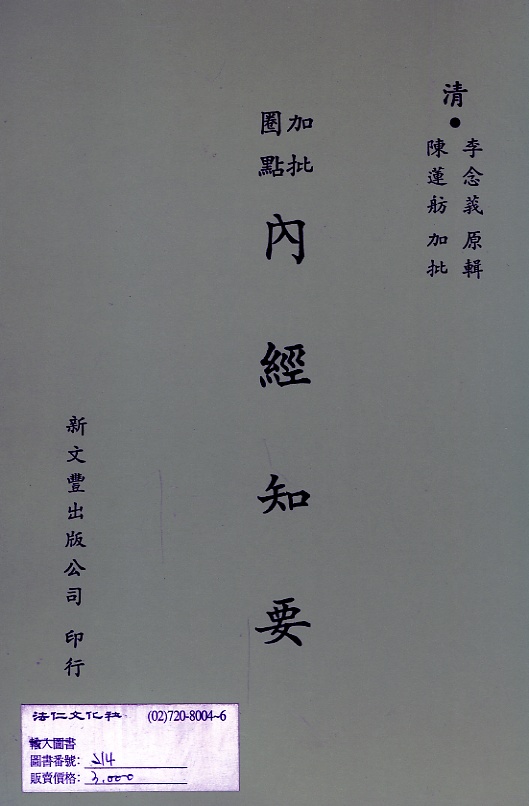 清●
李念莪 原輯
陳蓮舫 加批
加批
圈點
內經知要
新文豐出版公司 印行
法仁文化社 (02)720-8004~6
輸大圖書
圖書番號: 214
販賣價格: 3,000